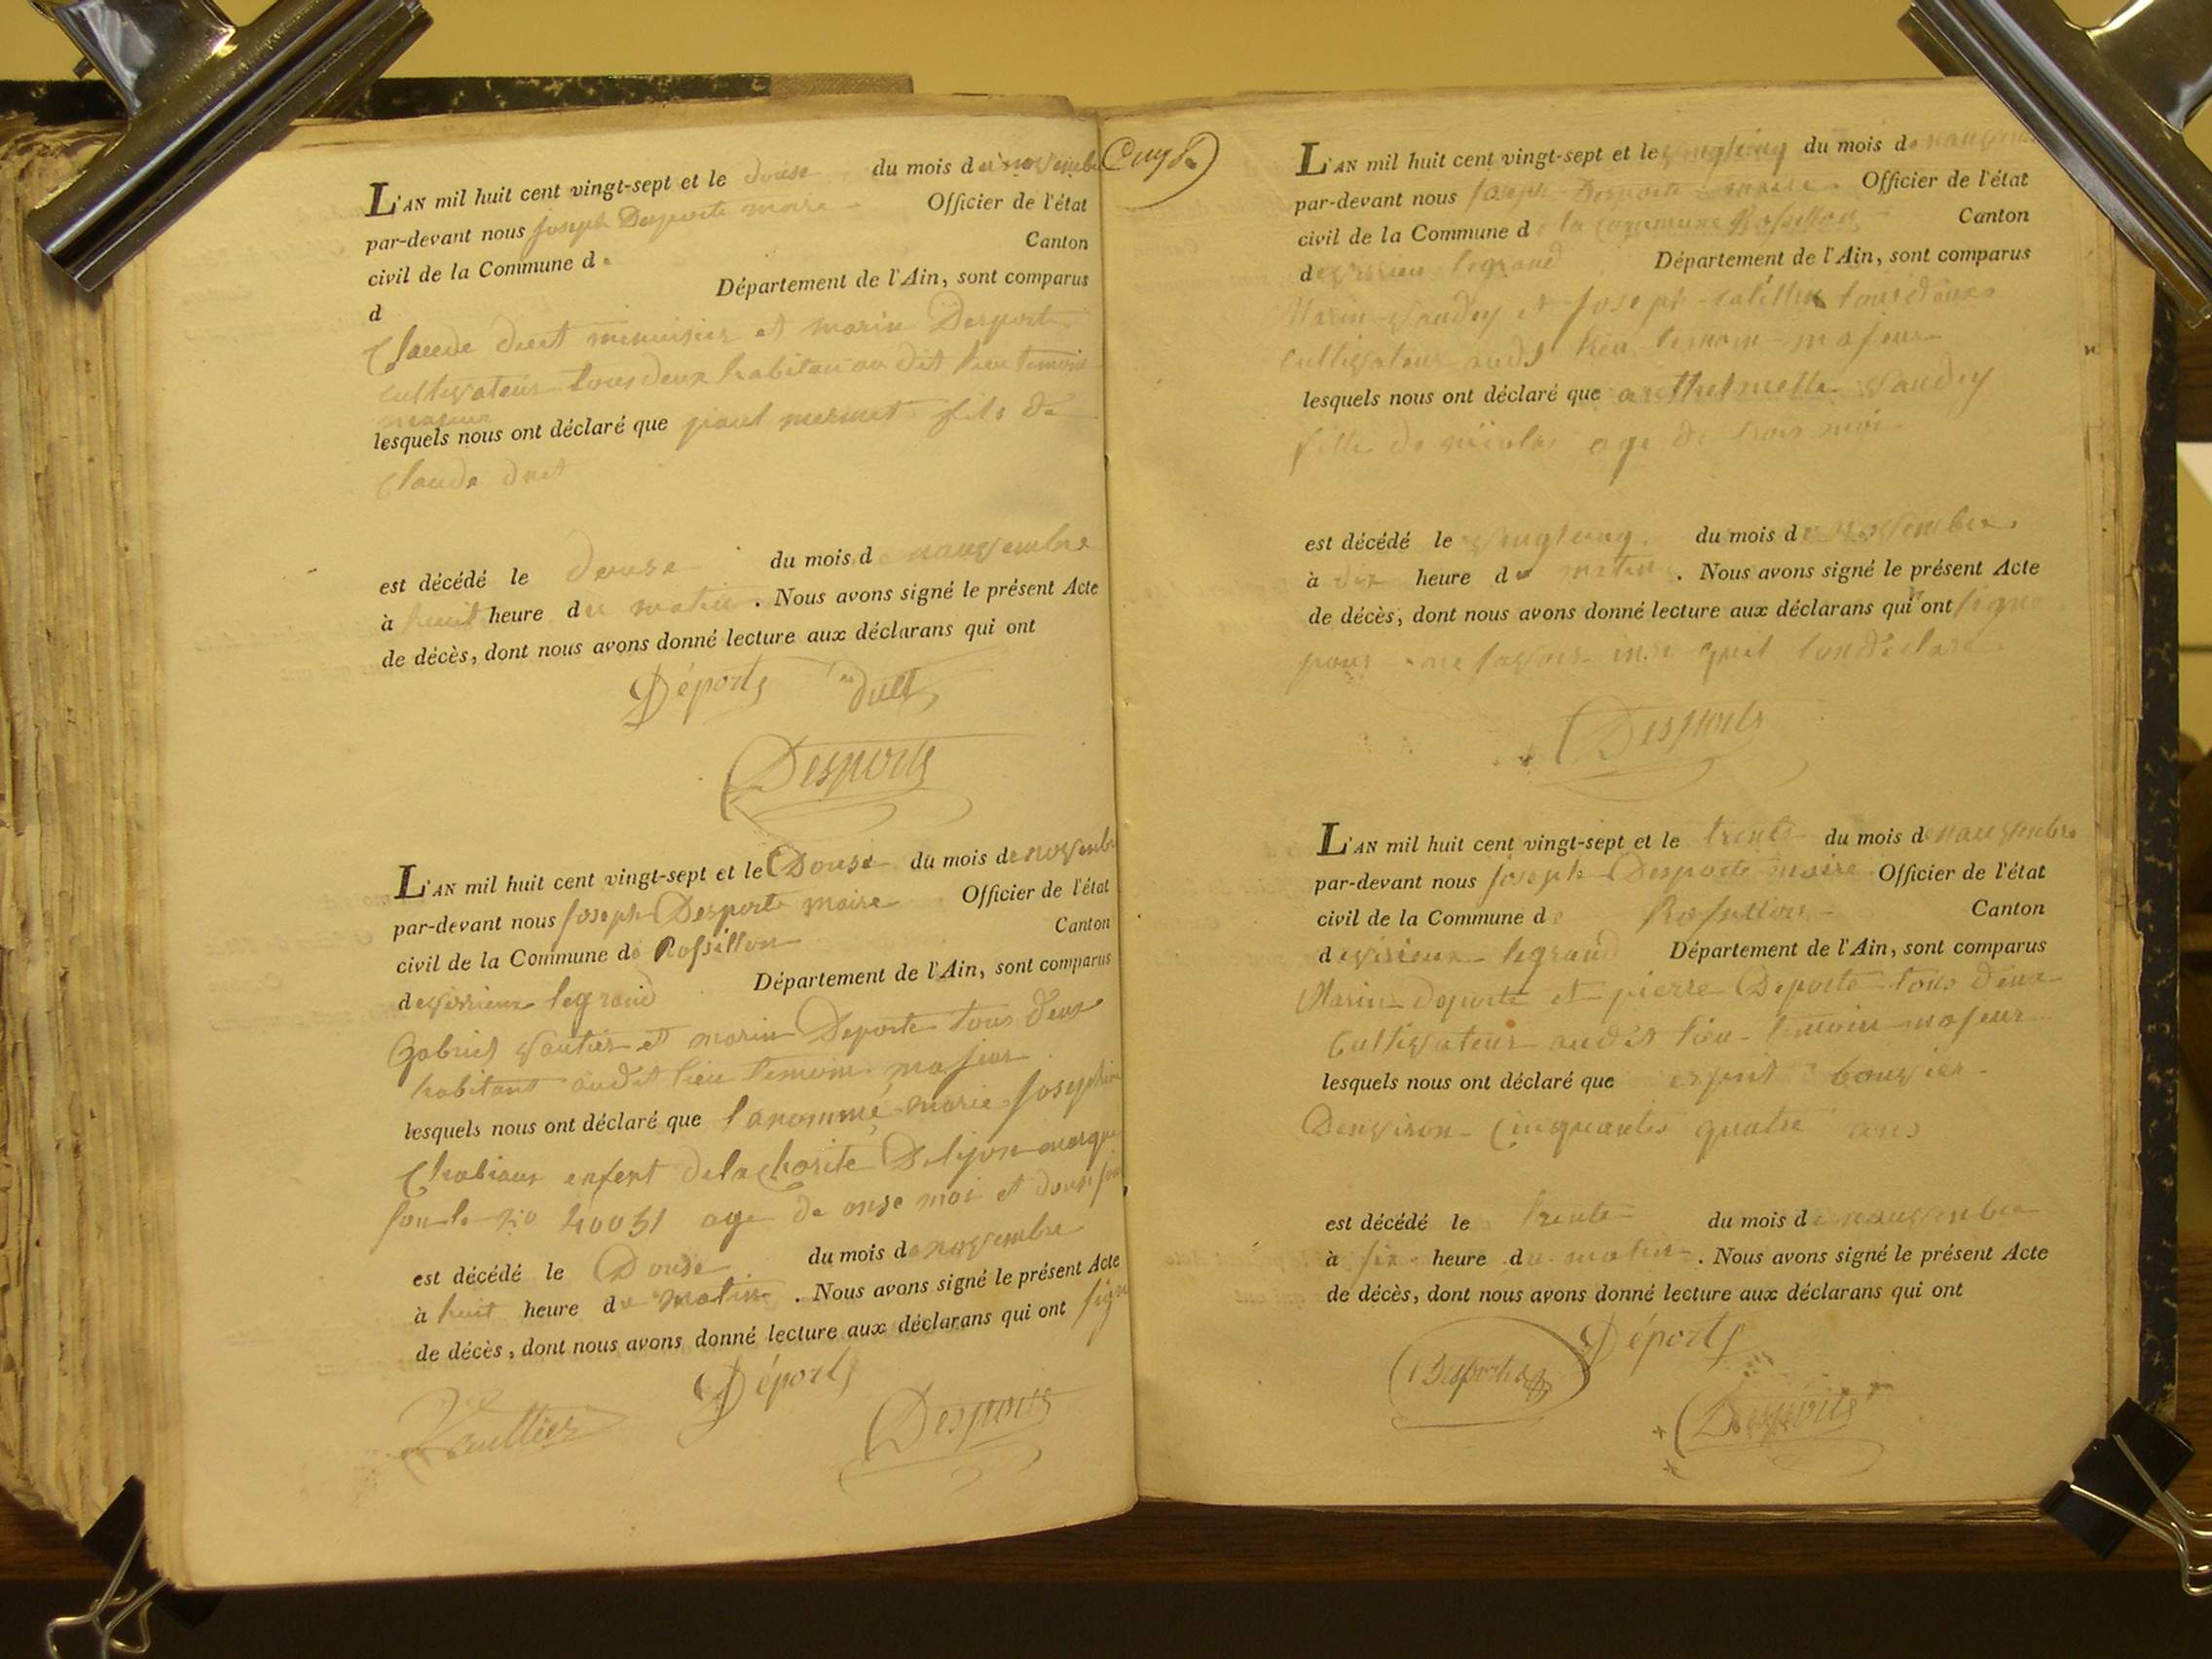 L'AN mil huit cent vingt-sept et le douse du mois de novembre
par-devant nous joseph Desporte maire Officier de l'état
civil de la Commune d Canton
d Département de l'Ain, sont comparus
Claude duet menuisier et marin Desporte
cultivateur tous deux habitan au dit lieu temoin
majeur
lesquels nous ont déclaré que paul mermet fils de
Claude duet
est décédé le douse du mois de nauvembre
à huit heure du matin. Nous avons signé le présent Acte
de décès, dont nous avons donné lecture aux déclarans qui ont
Déports duet
Desports
L'AN mil huit cent vingt-sept et le Douse du mois de novembre
par-devant nous joseph Desporte maire Officier de l'état
civil de la Commune de Rossillon Canton
de virieux legrand Département de l'Ain, sont comparus
Gabriel vautier et marin Deporte tous deux
habitant audit lieu temoin majeur
lesquels nous ont déclaré que lanommé marie josephine
enfent delacharité De lyon marque
sou le no 40051 age de onse moi et douse jour
est décédé le Douse du mois de novembre
à huit heure du matin. Nous avons signé le présent Acte
de décès, dont nous avons donné lecture aux déclarans qui ont signe
Déports
Vauttier Desports
L'AN mil huit cent vingt-sept et le vingtcinq du mois de nauvembre
par-devant nous joseph Desporte maire Officier de l'état
civil de la Commune d la commune Rossillon Canton
de virieu legrand Département de l'Ain, sont comparus
Marin vaudey et joseph tous deux
cultivateur audit lieu temoin majeur
lesquels nous ont déclaré que anthelmette vaudey
fille de nicolas age de trois moi
est décédé le vingtcinq du mois de novembre
à dix heure du matin. Nous avons signé le présent Acte
de décès, dont nous avons donné lecture aux déclarans qui n'ont signe
pour ne savoir
Desports
L'AN mil huit cent vingt-sept et le trente du mois de nauvembre
par-devant nous joseph Desporte maire Officier de l'état
civil de la Commune de Rosillon Canton
de virieux legrand Département de l'Ain, sont comparus
Marin Deporte et pierre Deporte tous deux
cultivateur audit lieu temoin majeur
lesquels nous ont déclaré que esprit bouvier
Denviron cinquante quatre ans
est décédé le trente du mois de nauvembre
à six heure du matin. Nous avons signé le présent Acte
de décès, dont nous avons donné lecture aux déclarans qui ont
Déports
Desportes
Desports